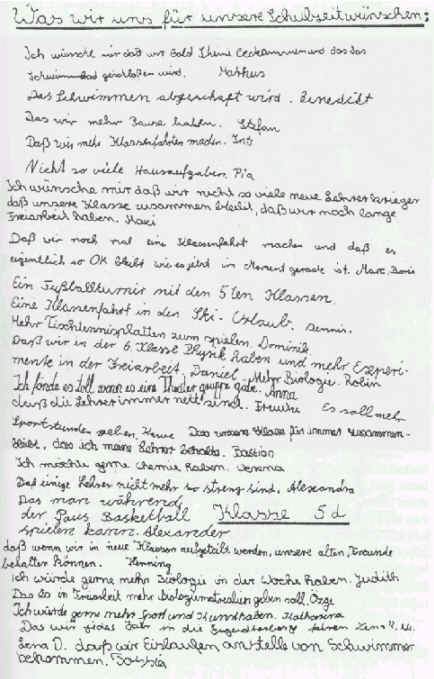 Was wir uns für unsere Schulzeit wünschen:
Ich wünsche mir daß wir bald
Schwimmbad geschloßen wird. Mathus
Das Schwimmen abgeschaft wird. Benedikt
Das wir mehr Pause haben. Stefan
Daß wir mehr Klassenfahrten machen.
Nicht so viele Hausaufgaben. Pia
Ich wünsche mir daß wir nicht so viele neue Lehrer krieger
daß unsere Klasse zusammen bleibt, daß wir noch lange
Freiarbeit haben. Maxi
Daß wir noch mal eine Klassenfahrt machen und daß es
eigentlich so OK bleibt wie es jetzt im Moment gerade ist. Marc, Boris
Ein Fußballturnir mit den 5ten Klassen.
Eine Klassenfahrt in den Ski-Urlaub. Dennis.
Mehr Tischtennisplatten zum spielen. Dominik
Daß wir in der 6. Klasse Physik haben und mehr Experi-
mente in der Freiarbeit. Daniel, Mehr Biologie. Robin
Ich fände es toll wenn es eine Theater gruppe gäbe. Anna
daß die Lehrer immer nett sind. Frauke Es soll mehr
Sportstunden geben, Das unsere Klasse für immer zusammen-
bleibt, das ich meine Lehrer behalte. Bastian
Ich möchte gerne Chemie haben. Verena
Daß einige Lehrer nicht mehr so streng sind. Alexandra
Das man während
der Paus Basketball Klasse 5d
spielen kann. Alexander
daß wenn wir in neue Klassen aufgeteilt werden, unsere alten Freunde
behalten können. Henning
Ich würde gerne mehr Biologie in der Woche haben. Judith
Das es in Freiarbeit mehr Biologiematerialien geben soll. Özge
Ich würde gerne mehr Sport und Kunst haben. Katharina
Das wir jedes Jahr in die Jugendherberge fahren
Lena D. daß wir Eislaufen anstelle von Schwimmen
bekommen. Saskia